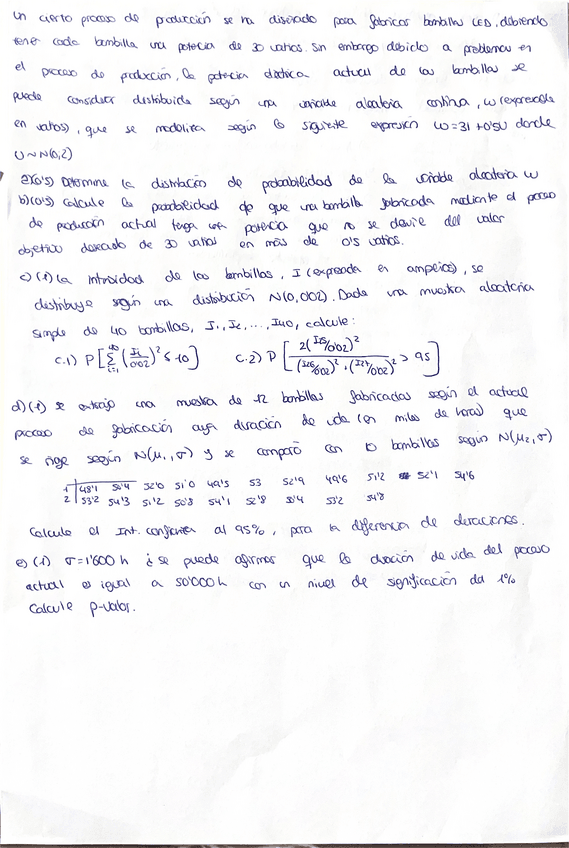 Un cierto proceso de producción se ha diseñado para fabricar bombillas LED, debiendo
tener cada bombilla una potencia de 30 vatios. Sin embargo debido a problemas en
el proceso de producción, la potencia eléctrica actual de las bombillas se
puede considerar distribuida según una variable aleatoria continua, W (expresable
en vatios), que se modeliza según la siguiente expresión W=31+0'5U donde
U~N(0,2)
a)(0'5) Determine la distribución de probabilidad de la variable aleatoria W
b)(0'5) Calcule la probabilidad de que una bombilla fabricada mediante el proceso
de producción actual tenga una potencia que no se desvíe del valor
objetivo deseado de 30 vatios en más de 0'5 vatios.
c)(1) La intensidad de las bombillas, I (expresada en amperios), se
distribuye según una distribución N(0,0'02). Dada una muestra aleatoria
simple de 40 bombillas, I1, I2, ..., I40, calcule:
c.1) P[∑ i=1 40 (Ii/0'02)² ≤ 10] c.2) P[2(I25/0'02)² / ((I26/0'02)² + (I27/0'02)²) > 9'5]
d)(1) Se extrajo una muestra de 12 bombillas fabricadas según el actual
proceso de fabricación cuya duración de vida (en miles de horas) que
se rige según N(μ1,σ) y se comparó con 10 bombillas según N(μ2,σ)
1 48'1 50'4 52'0 51'0 49'5 53 52'9 49'6 51'2 52'1 54'6
2 53'2 54'3 51'2 50'8 54'1 52'8 53'2 54'8
Calcule el Int. confianza al 95%, para la diferencia de duraciones.
e)(1) σ=1'600 h ¿se puede afirmar que la duración de vida del proceso
actual es igual a 50'000 h con un nivel de significación del 1%
Calcule p-valor.